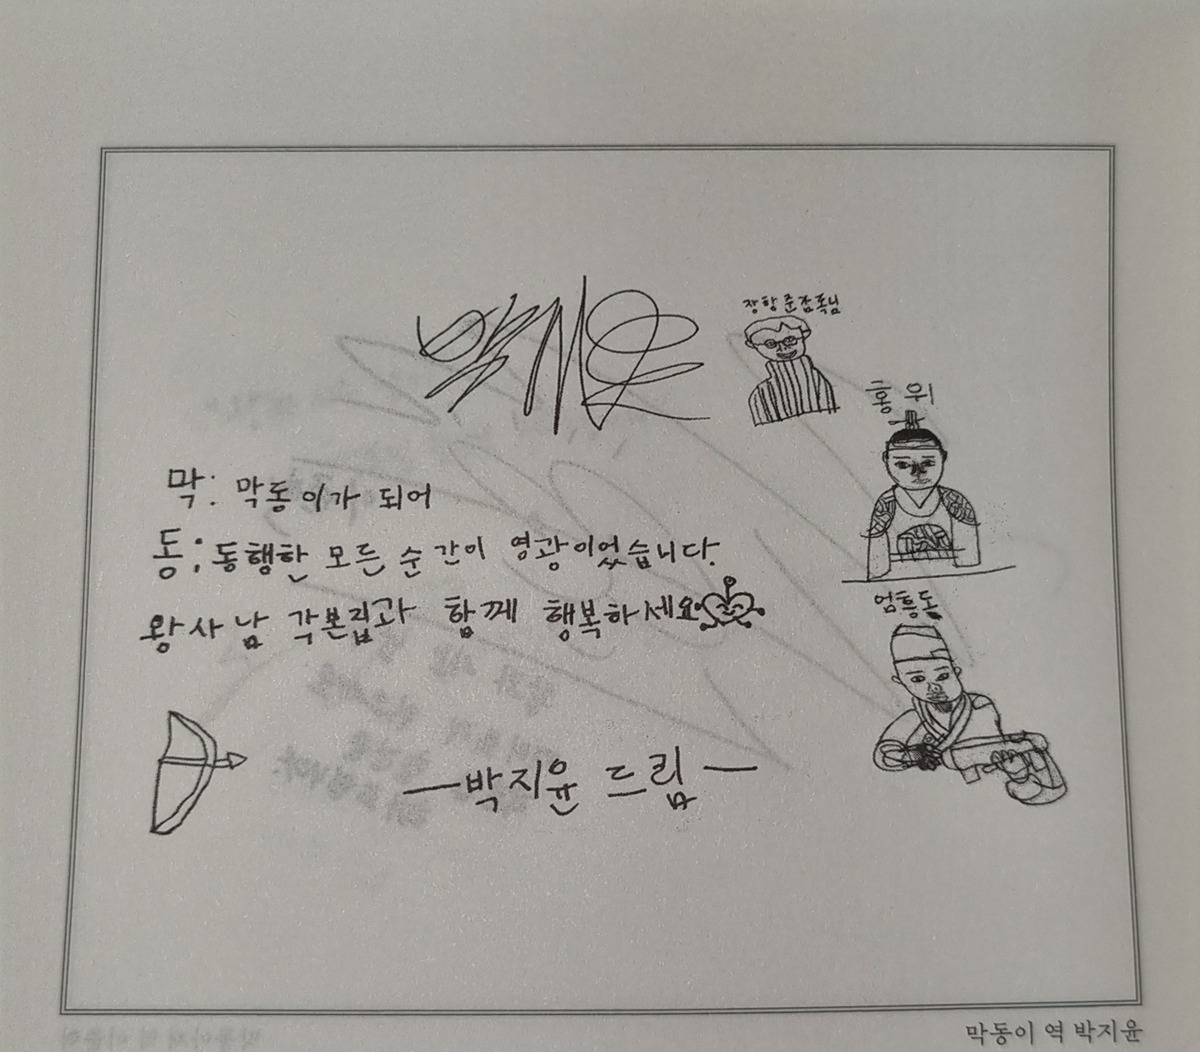 장항준감독님
홍위
막: 막동이가 되어
동: 동행한 모든 순간이 영광이었습니다.
왕사남 각본집과 함께 행복하세요
엄흥도
—박지윤 드림—
막동이 역 박지윤